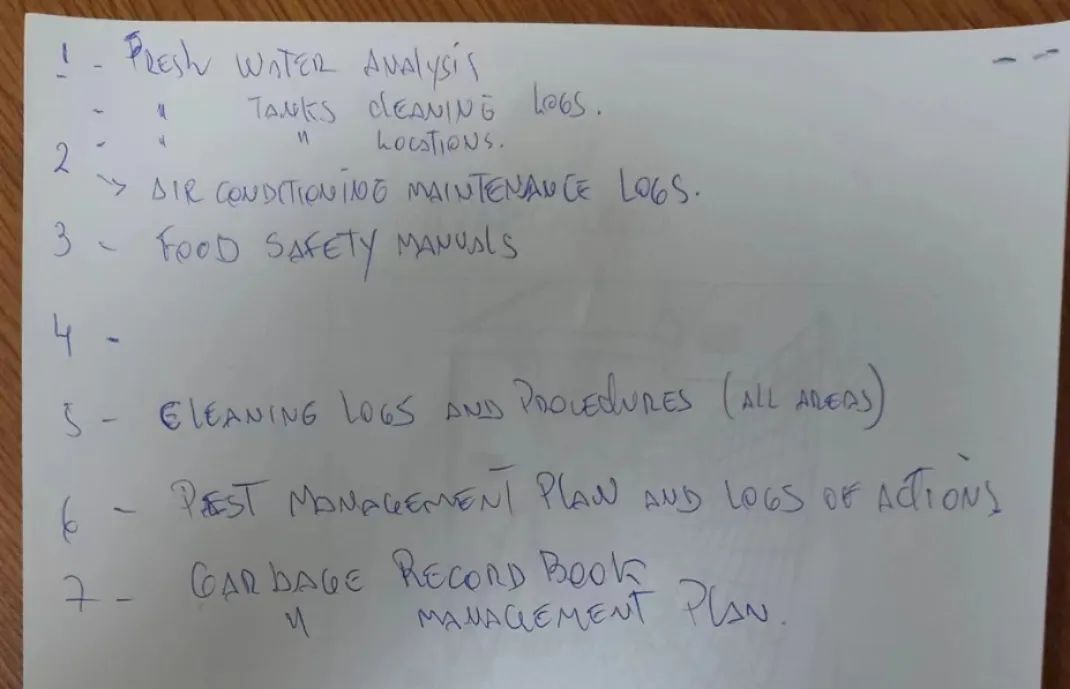 1 - FRESH WATER ANALYSIS
- " TANKS CLEANING LOGS.
- " " LOCATIONS.
2
→ AIR CONDITIONING MAINTENANCE LOGS.
3 - FOOD SAFETY MANUALS
4 -
5 - CLEANING LOGS AND PROCEDURES (ALL AREAS)
6 - PEST MANAGEMENT PLAN AND LOGS OF ACTIONS
7 - GARBAGE RECORD BOOK
" MANAGEMENT PLAN.